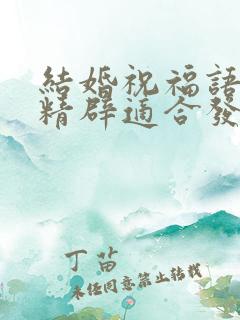 結婚祝福語
精辟適合發
丁苗
未经同意禁止转载